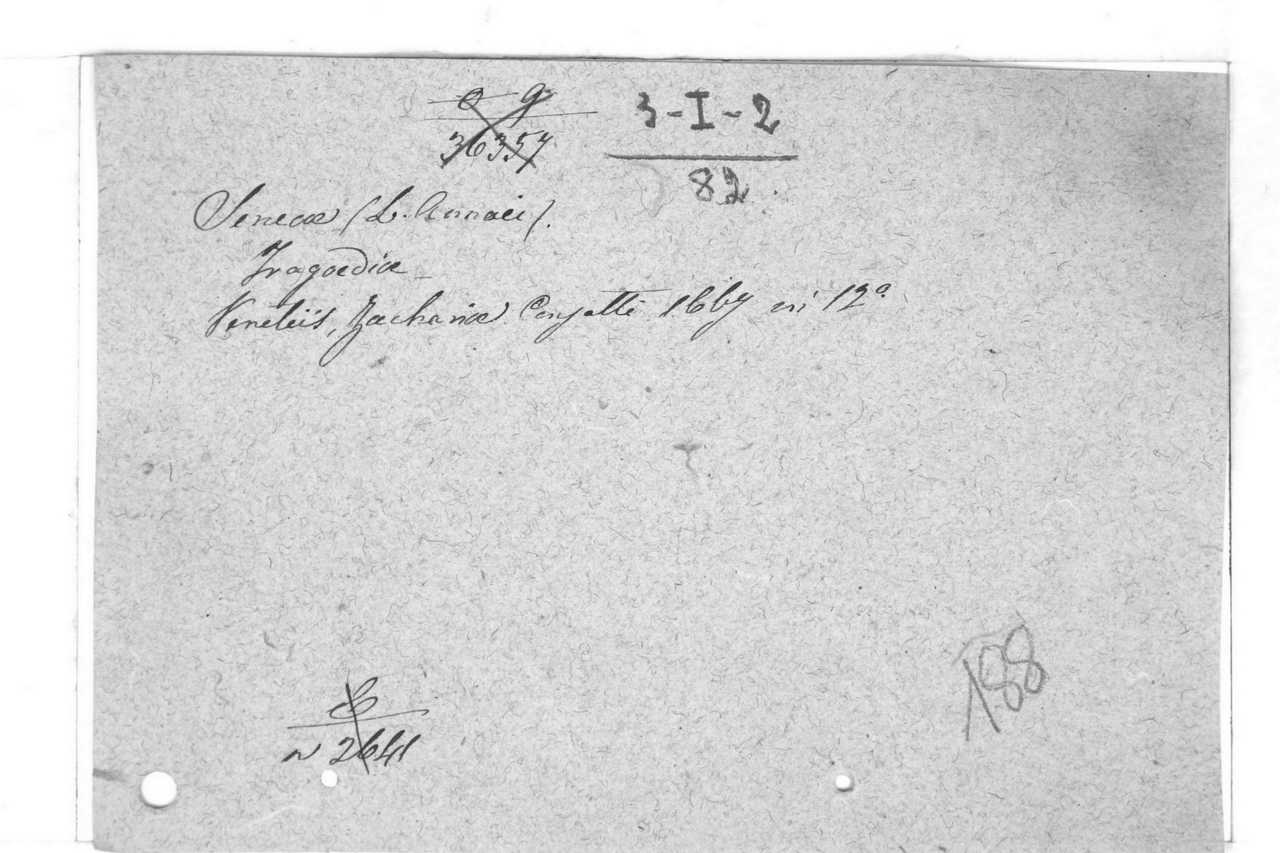 36357
3-I-2
82
Senecæ (L. Annaei).
Tragoediæ
Venetiis, Zachariæ Conzatti 1667 in 12º
n 2641
188